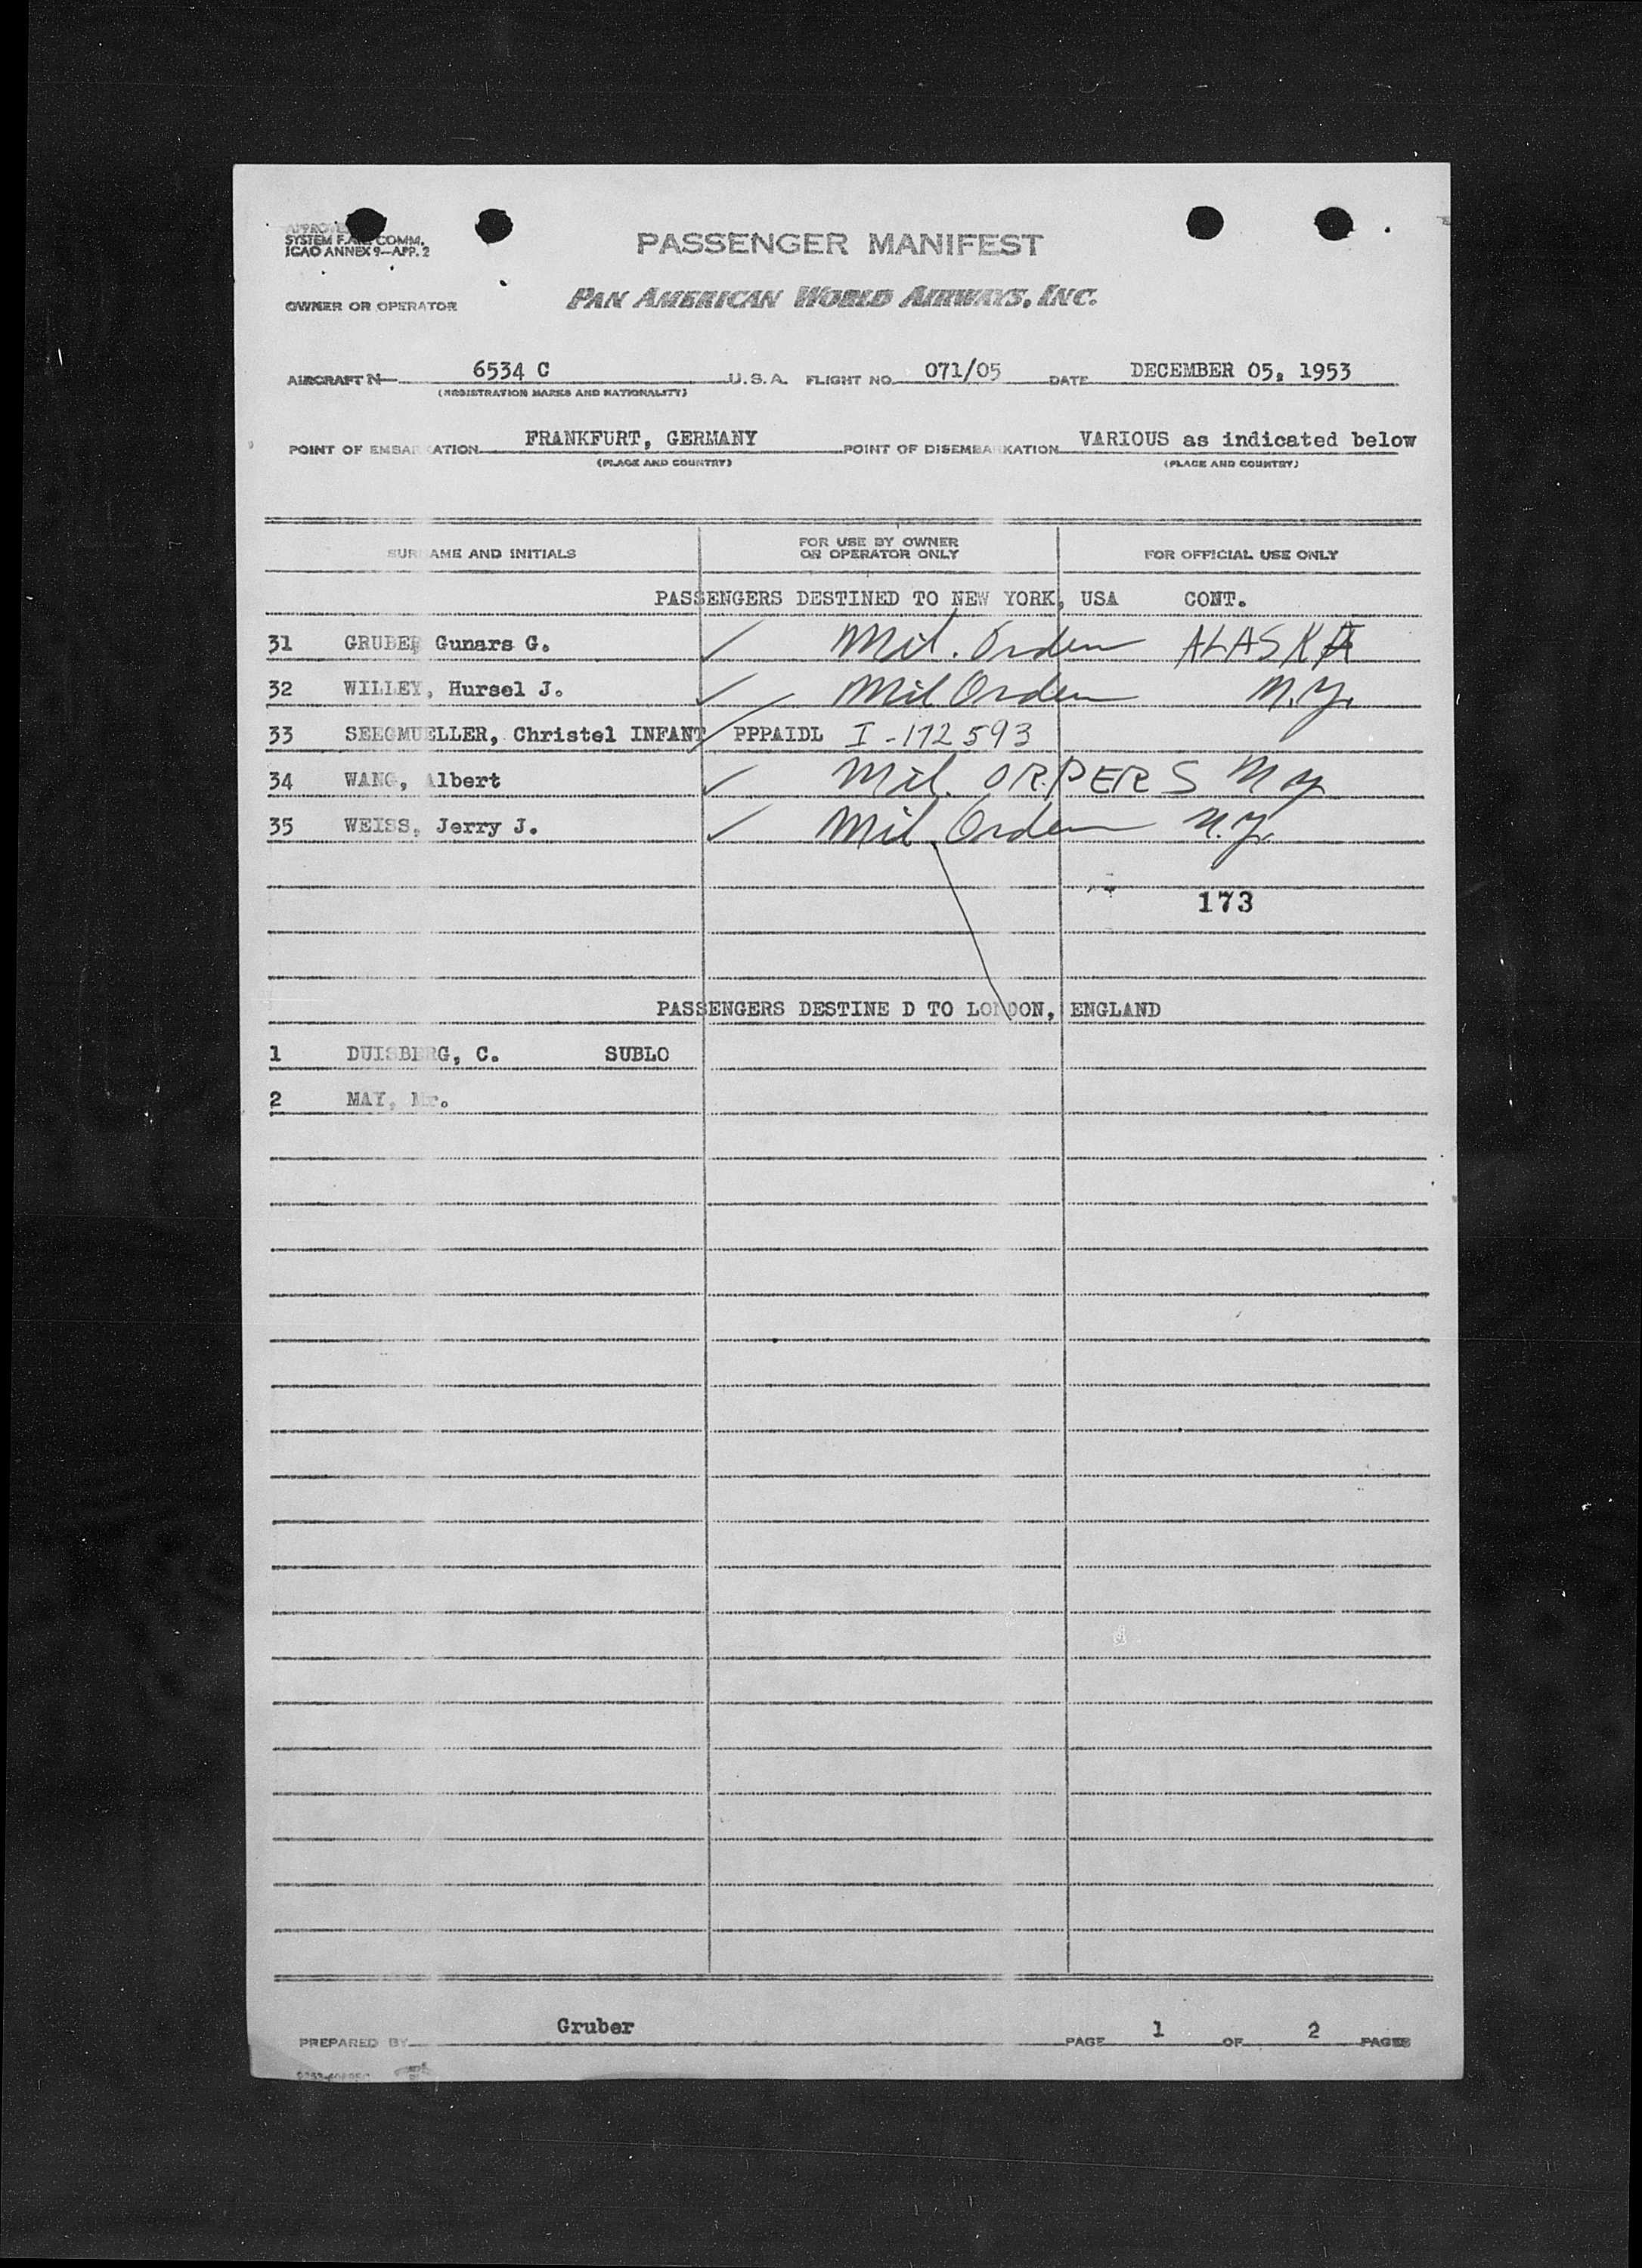 APPROVED
SYSTEM F.A.L. COMM.
ICAO ANNEX 9—APP. 2
PASSENGER MANIFEST
OWNER OR OPERATOR PAN AMERICAN WORLD AIRWAYS, INC.
AIRCRAFT N— 6534 C U.S.A. FLIGHT NO. 071/05 DATE DECEMBER 05, 1953
(REGISTRATION MARKS AND NATIONALITY)
POINT OF EMBARKATION FRANKFURT, GERMANY POINT OF DISEMBARKATION VARIOUS as indicated below
(PLACE AND COUNTRY) (PLACE AND COUNTRY)
SURNAME AND INITIALS FOR USE BY OWNER OR OPERATOR ONLY FOR OFFICIAL USE ONLY
PASSENGERS DESTINED TO NEW YORK, USA CONT.
31 GRUBER Gunars G. ✓ Mil. Orders ALASKA
32 WILLEY, Hursel J. ✓ Mil Orders N.Y.
33 SEEGMUELLER, Christel INFANT ✓ PPPAIDL I-172593
34 WANG, Albert ✓ Mil. ORDERS N Y
35 WEISS, Jerry J. ✓ Mil Orders N.Y.
173
PASSENGERS DESTINE D TO LONDON, ENGLAND
1 DUISBERG, C. SUBLO
2 MAY, Mr.
PREPARED BY Gruber PAGE 1 OF 2 PAGES